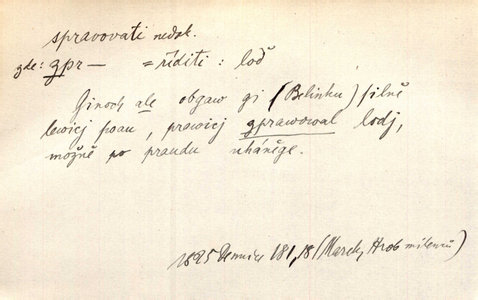 spravovati nedok.
zde: zpr— = říditi : loď
Ginoch ale obgaw gi (Belinku) silně
lewicj swau, prawicj zprawowal lodj,
možně po praudu uháněge.
1825 Dennice 181,18 (Marek, Hrob milenců)